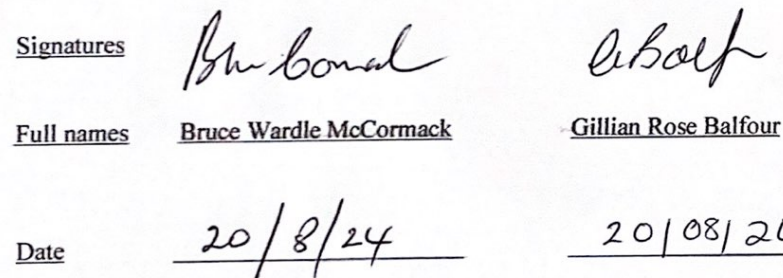 Signatures
Full names Bruce Wardle McCormack Gillian Rose Balfour
Date 20/8/24 20/08/20